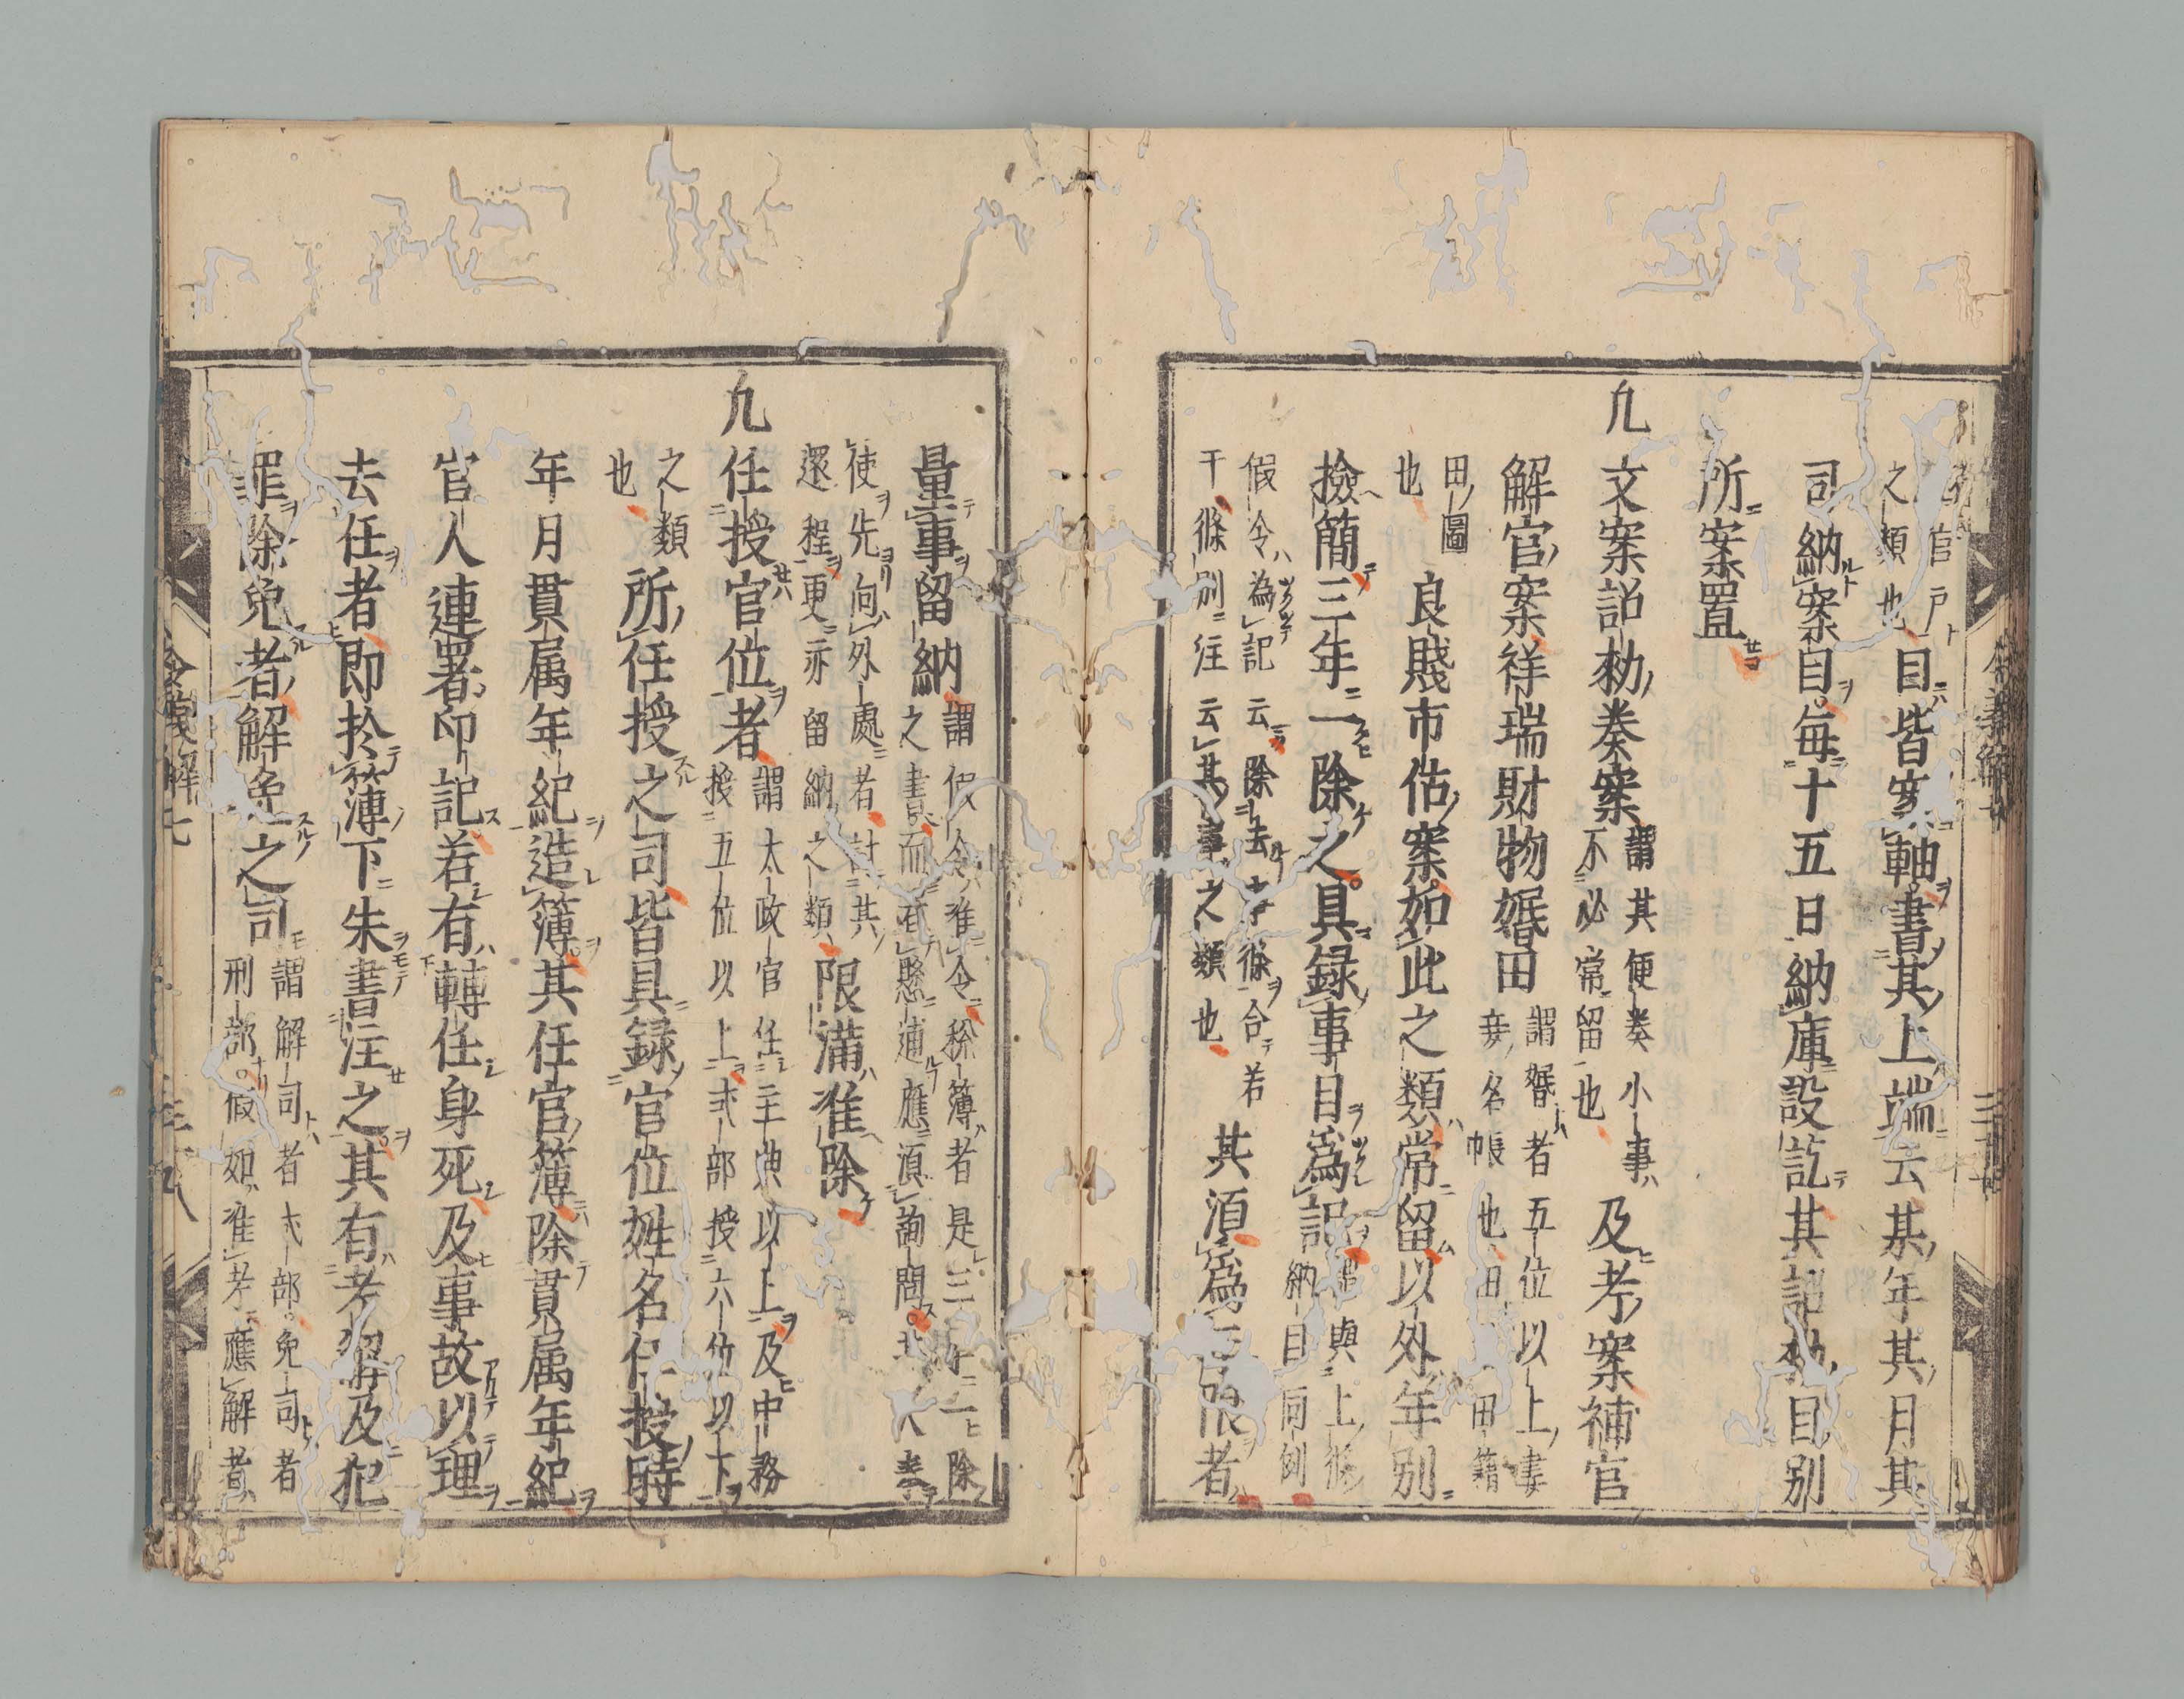 官戸
之類也 目皆案軸書其上端云某年其月其
司納案目毎十五日納庫設訖其詔勅目別
所案置
九文案詔勅奏案 謂其便奏小事
不必常留也 及考案補官
解官案祥瑞財物婚田 謂婚者五位以上妻
妾名帳也田 田籍
田圖
也 良賤市估案如此之類常留以外年別
撿簡三年一除之具録事目爲記 謂與上條
納目同例
假令為記云除去 條合若
干條別注云其事之類也 其湏爲 限者
量事留納 謂假令准令称簿者是三 一除
之書而 懸逋應湏詢問 人奉
使先向外處者計其
還程更亦留納之類 限滿准除
九任授官位者 謂太政官任主典以上及中務
授五位以上式部授六位以下
之類
也 所任授之司皆具録官位姓名任授時
年月貫属年紀造簿其任官簿除貫属年紀
官人連署印記若有轉任身死及事故以理
去任者即於簿下朱書注之其有考解及犯
罪除免者解免之司 謂解司者式部免司者
刑部假如准考應解者
令義解七